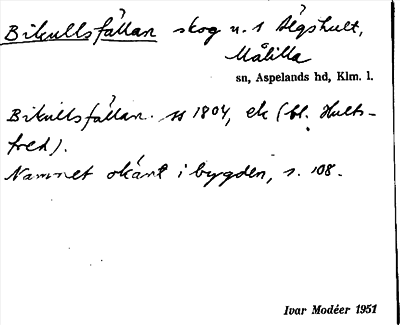 Bikullsfällan skog n. 1 Älgshult,
Målilla
sn, Aspelands hd, Klm. l.
Bikullsfällan. ss 1804, ek (bl. Hults-
fred).
Namnet okänt i bygden, s. 108.
Ivar Modéer 1951